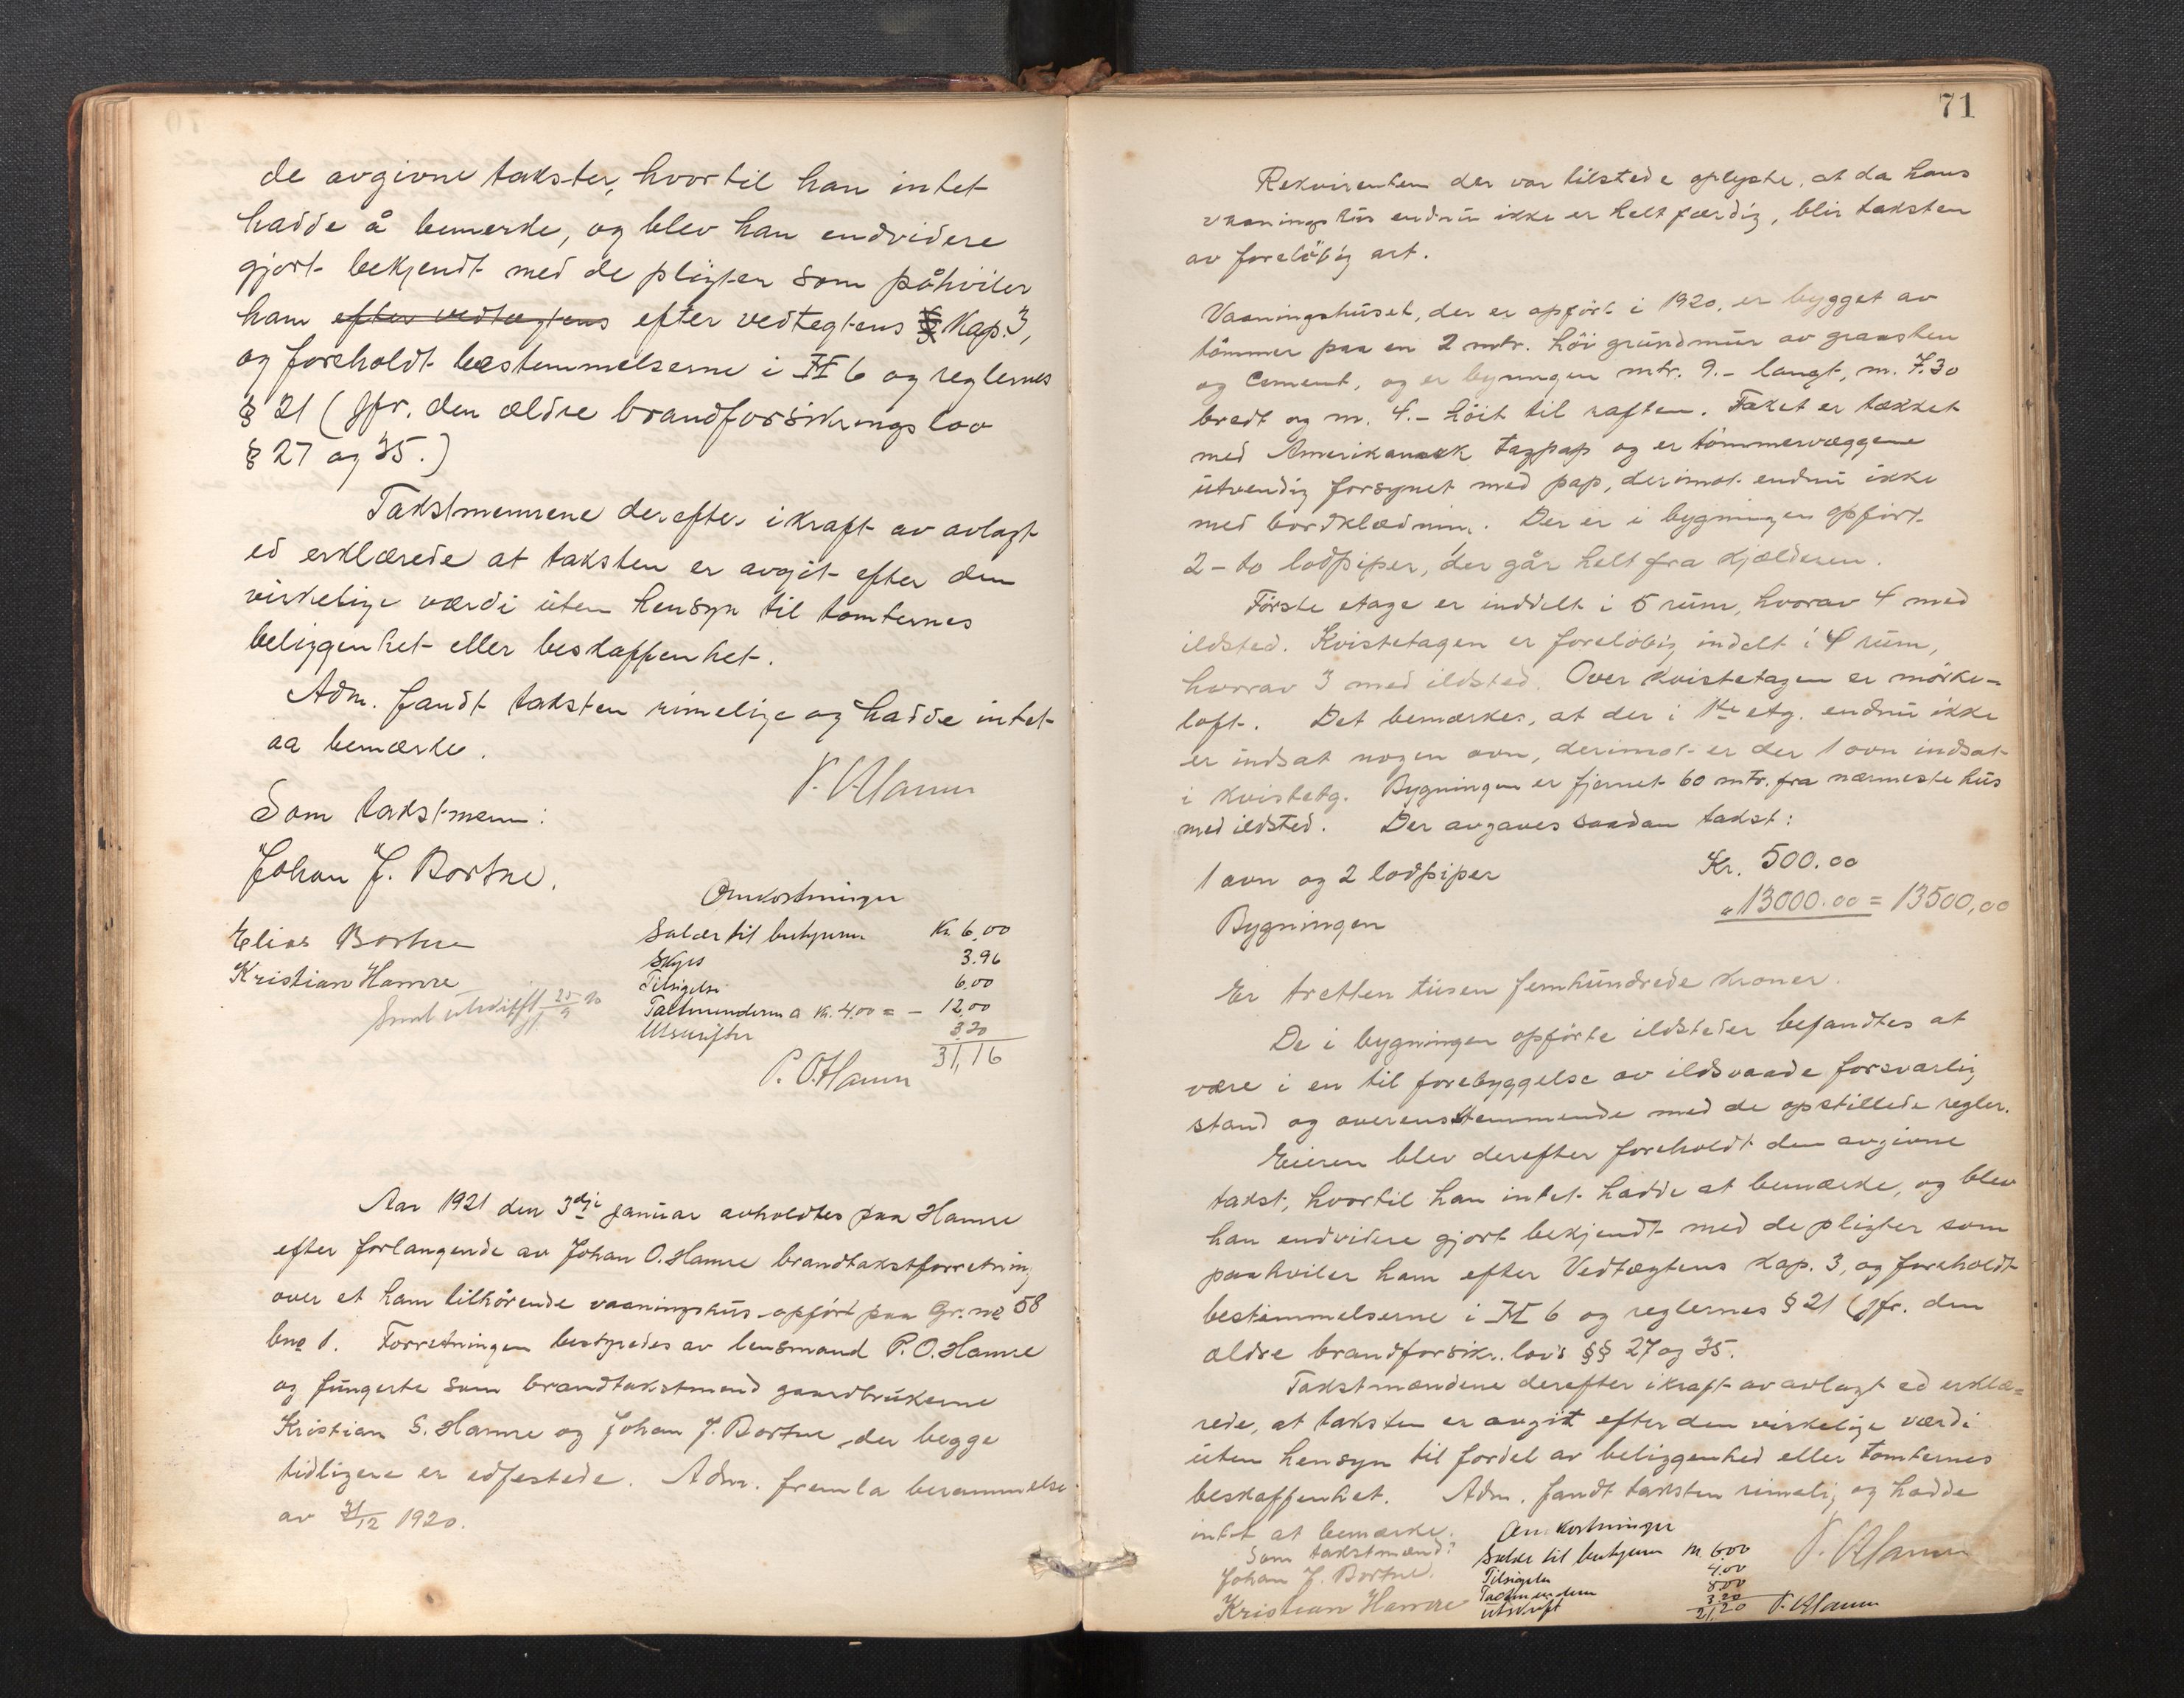 de avgivne takster, hvortil han intet
hadde å bemerke, og blev han endvidere
gjort bekjendt med de pligter som påhviler
ham efter vedtægtens efter vedtegtens § Kap. 3,
og foreholdt bestemmelserne i II 6 og reglernes
§ 21 (jfr. den ældre brandforsikrings lov
§ 27 og 35.)
Takstmennene derefter i kraft av avlagt
ed erklærede at taksten er avgit efter den
virkelige værdi uten hensyn til tomternes
beliggenhet eller beskaffenhet.
Adm. fandt taksten rimelige og hadde intet
aa bemærke.
P. O. Hamre
Som takstmenn:
Johan J. Bortne.
Elias Bortne
Kristian Hamre
Omkostninger
Salær til bestyreren Kr. 6,00
Skyss 3.96
Tilsigelse 6.00
Takstmændenne a Kr. 4.00 = – 12,00
Utskrifter 3.20
31,16
P. O. Hamre
Aar 1921 den 3dje januar avholdtes paa Hamre
efter forlangende av Johan O. Hamre brandtakstforretning
over et ham tilhørende vaaningshus opført paa Gr. no 58
bno 1. Forretningen bestyredes av lensmand P. O. Hamre
og fungerte som brandtakstmænd gaardbrukerne
Kristian S. Hamre og Johan J. Bortne der begge
tidligere er edfestede. Adm. fremla berammelse
av 31/12 1920.
71
Rekvirenten der var tilstede oplyste, at da hans
vaaningshus endnu ikke er helt færdig, blir taksten
av foreløbig art.
Vaaningshuset, der er opført i 1920, er bygget av
tømmer paa en 2 mtr. høi grundmur av graasten
og Cement, og er bygningen mtr. 9.– langt, m. 7.30
bredt og m. 4.– høit til raften. Taket er tækket
med Amerikansk tagpap og er tømmervæggene
utvendig forsynet med pap, derimot endnu ikke
med bordklædning. Der er i bygningen opført
2 – to lodpiper, der går helt fra kjælderen.
Første etage er inddelt i 5 rum, hvorav 4 med
ildsted. Kvistetagen er foreløbig indelt i 4 rum,
hvorav 3 med ildsted. Over kvistetagen er mørke-
loft. Det bemærkes, at der i 1ste etg. endnu ikke
er indsat nogen ovn, derimot er der 1 ovn indsat
i kvistetg. Bygningen er fjernet 60 mtr. fra nærmeste hus
med ildsted. Der avgaves saadan takst:
1 ovn og 2 lodpiper Kr. 500.00
Bygningen " 13000.00 = 13500,00
Er tretten tusen femhundrede kroner.
De i bygningen opførte ildsteder befandtes at
være i en til forebyggelse av ildsvaade forsvarlig
stand og overensstemmende med de opstillede regler.
Eieren blev derefter foreholdt den avgivne
takst, hvortil han intet hadde at bemærke, og blev
han endvidere gjort bekjendt med de pligter som
paahviler ham efter Vedtægtens Kap. 3, og foreholdt
bestemmelserne i II 6 og reglernes § 21 (jfr. den
ældre brandforsikr. lov's §§ 27 og 35.
Takstmændene derefter i kraft av avlagt ed erklæ=
rede, at taksten er avgit efter den virkelige værdi
uten hensyn til fordel av beliggenhed eller tomternes
beskaffenhet. Adm. fandt taksten rimelig og hadde
intet at bemærke.
Som takstmænd:
Johan J. Bortne.
Kristian Hamre
Omkostninger
Salær til bestyreren Kr. 6.00
Tilsigelse 4.00
Takstmændene 8.00
Utskrift 3.20
21,20
P. O. Hamre
P. O. Hamre